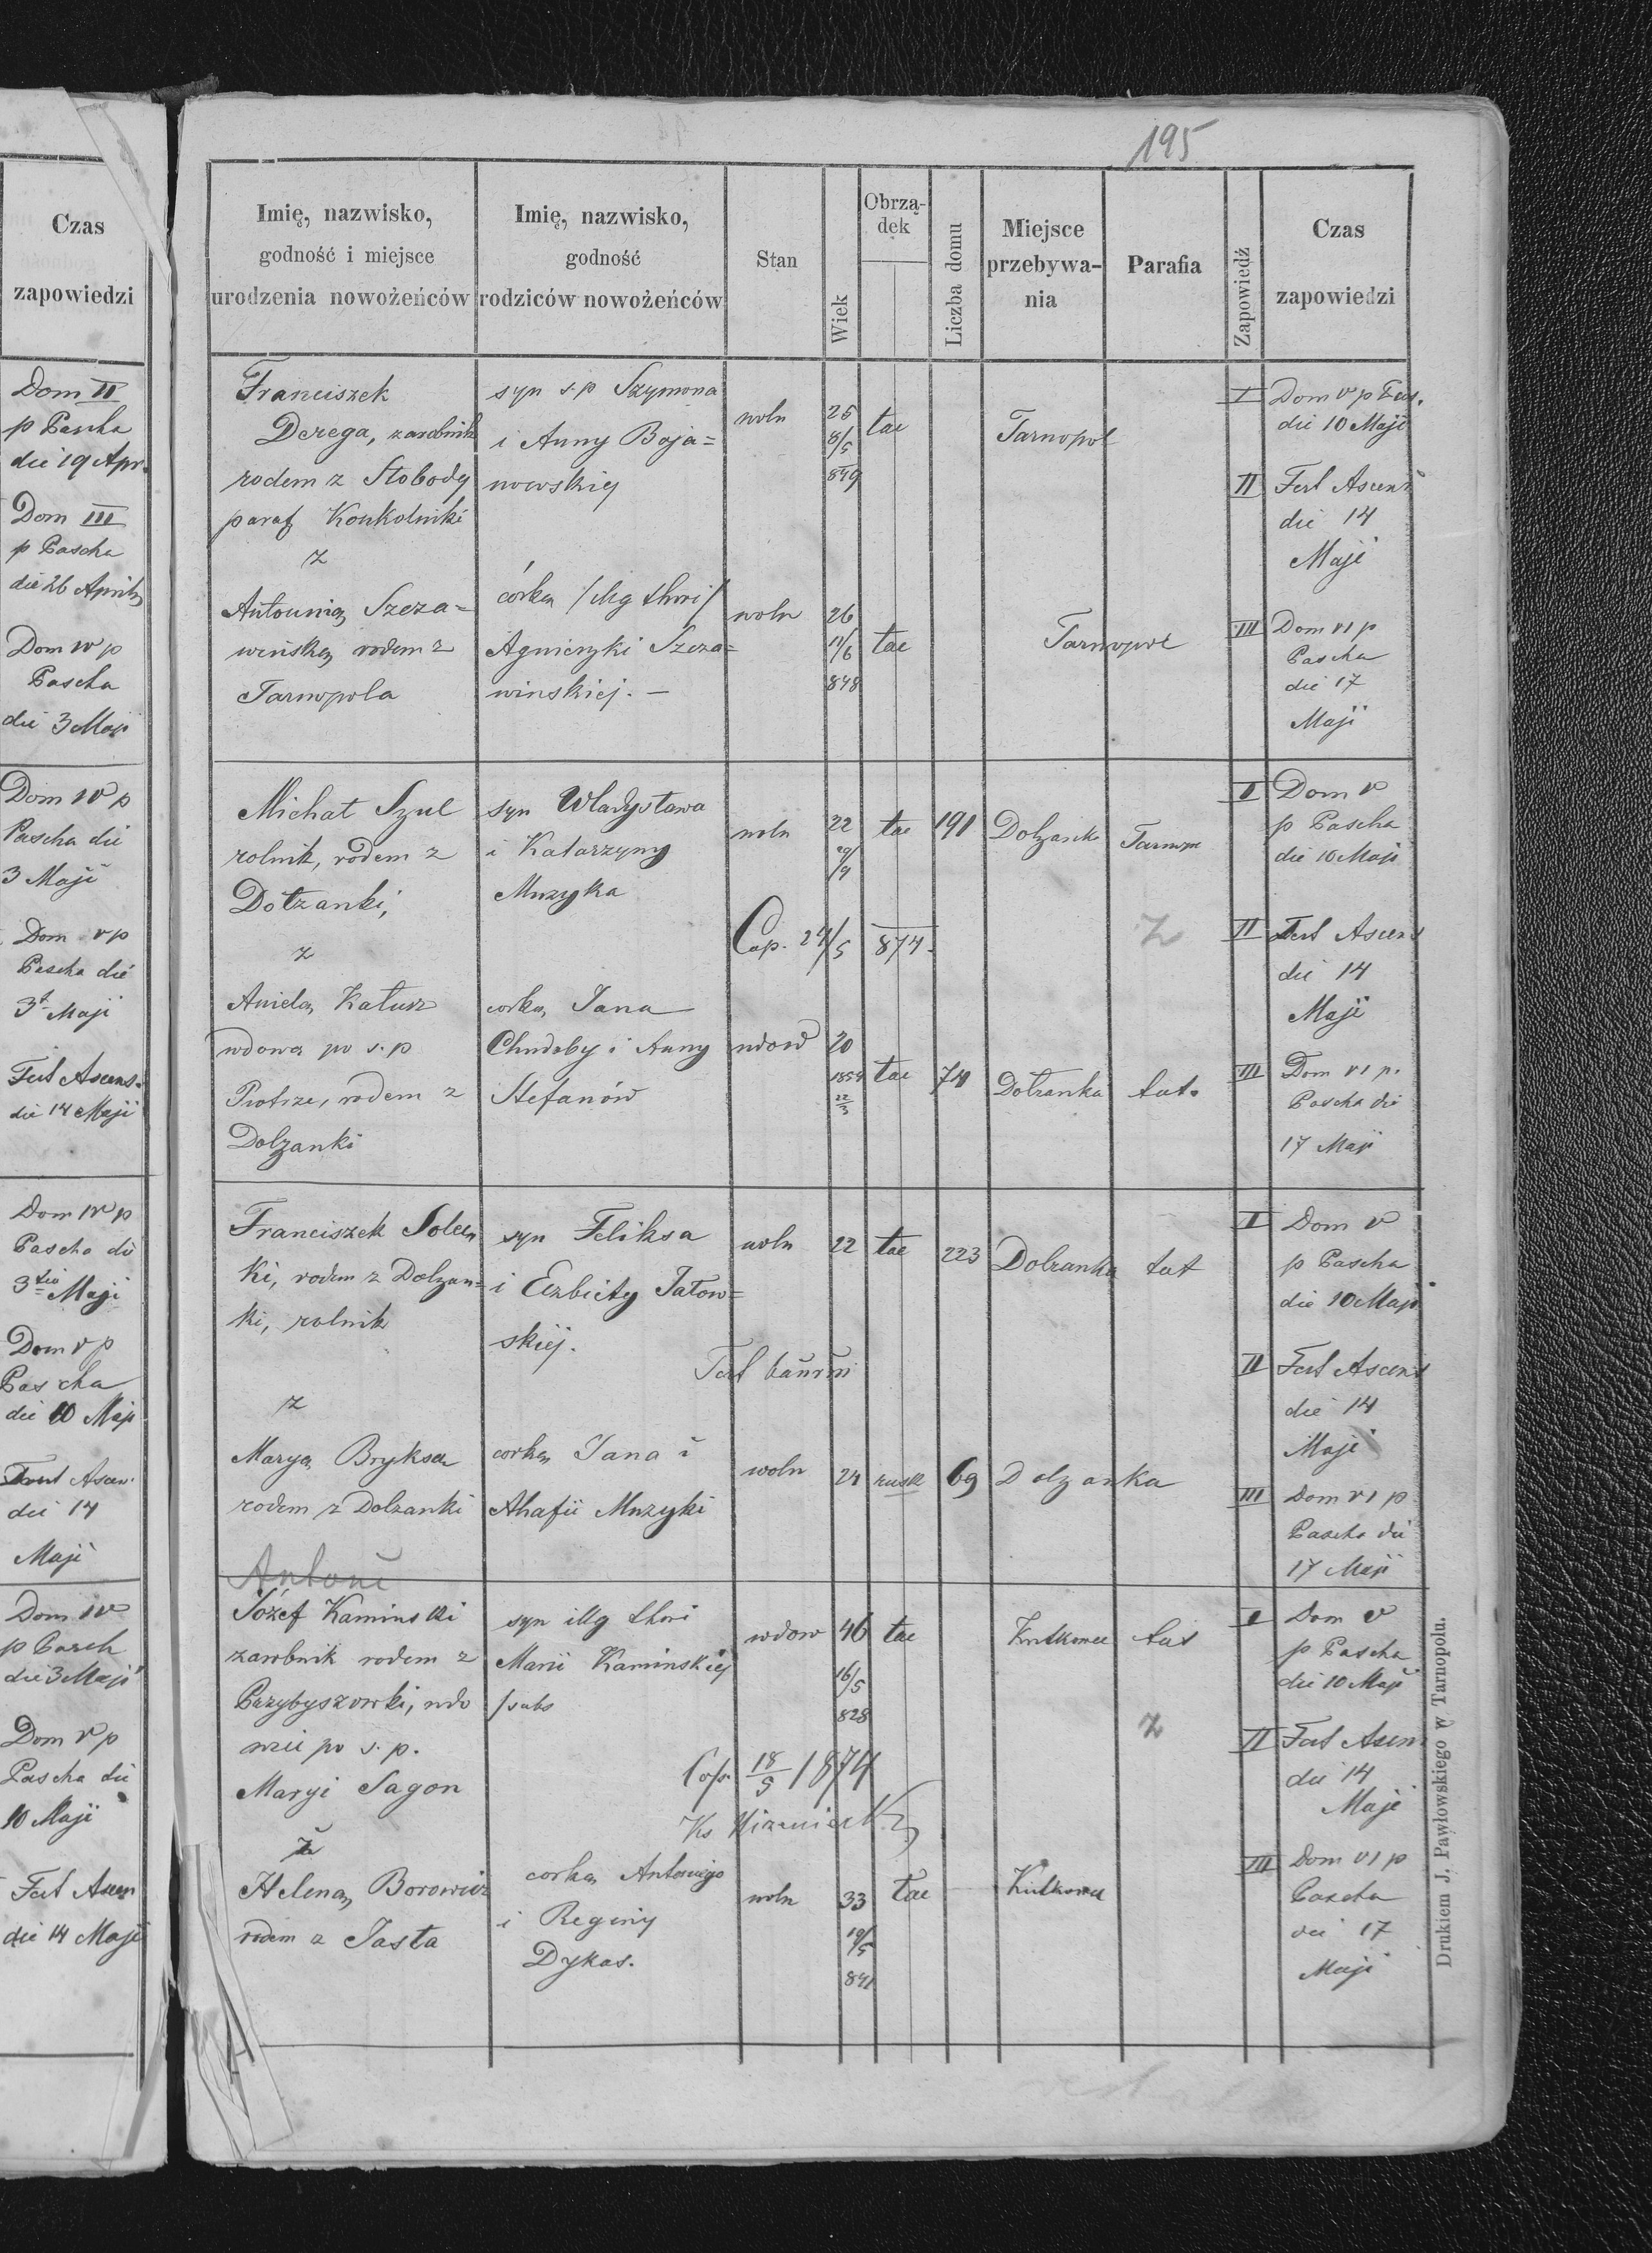 Czas
zapowiedzi
Dom II
p Pascha
die 19 Apr.
Dom III
p Pascha
die 26 Aprilis
Dom IV p
Pascha
die 3 Maji
Dom IV p
Pascha die
3 Maji
Dom V p
Pascha die
Maji
Fest Ascens.
die 14 Maji
Dom IV p
Pascha die
3tio Maji
Dom V p
Pascha
die 10 Maji
Fest Ascen.
die 14
Maji
Dom IV
p Pasch
die 3 Maji
Dom V p
Pascha die
10 Maji
Fest Ascen
die 14 Maji
195
Imię, nazwisko,
godność i miejsce
urodzenia nowożeńców
Imię, nazwisko,
godność
rodziców nowożeńców
Stan
Wiek
Obrzą-
dek
Liczba domu
Miejsce
przebywa-
nia
Parafia
Zapowiedź
Czas
zapowiedzi
Franciszek
Derega, zarobnik
rodem z Słobody
paraf Konkolniki
z
Antonią Szcza=
wińską rodem z
Tarnopola
syn s.p Szymona
i Anny Boja=
nowskiej
córką /illg thori/
Agnieszki Szcza=
winskiej. —
woln
25
8/5
849
tac
Tarnopol
woln
26
11/6
848
tac
Tarnopol
I Dom V p Pas.
die 10 Maji
II Fest Ascens
die 14
Maji
III Dom VI p
Pascha
die 17
Maji
Michał Szul
rolnik, rodem z
Dołzanki,
z
Anielą Kałusz
wdową po s.p
Piotrze, rodem z
Dolzanki
syn Władysława
i Katarzyny
Muzyka
corką Jana
Chudoby i Anny
Stefanów
woln
22
29/4
tac
191
Dolzanka
Tarnop
Cop. 24/5 874.
z
wdow
20
1854
22/3
tac
74
Dołzanka
tut.
I Dom V
p Pascha
die 10 Maji
II Fest Ascens
die 14
Maji
III Dom VI p.
Pascha die
17 Maji
Franciszek Solec
ki, rodem z Dolzan=
ki, rolnik
z
Maryą Bryksa
rodem z Dolzanki
syn Feliksa
i Elzbiety Jatow=
skiej.
corką Jana i
Ahafii Muzyki
woln
22
tac
223
Dolzanka
tut
woln
24
rusk
69
Dolzanka
I Dom V
p Pascha
die 10 Maji
II Fest Ascens
die 14
Maji
III Dom VI p
Pascha die
17 Maji
Antoni
Józef Kaminski
zarobnik rodem z
Przybyszowki, wdo
wiec po s.p.
Maryi Sagon
z
Heleną Borowicz
rodem z Jasła
syn illg thori
Marii Kaminskiej
corką Antoniego
i Reginy
Dykas.
wdow
46
16/5
828
tac
Kutkowce
tut
z
Cop. 18/5 1874
Ks
woln
33
19/5
841
tac
Kutkowce
I Dom V
p Pascha
die 10 Maji
II Fest Ascen
die 14
Maji
III Dom VI p
Pascha
die 17
Maji
Drukiem J. Pawłowskiego w Tarnopolu.